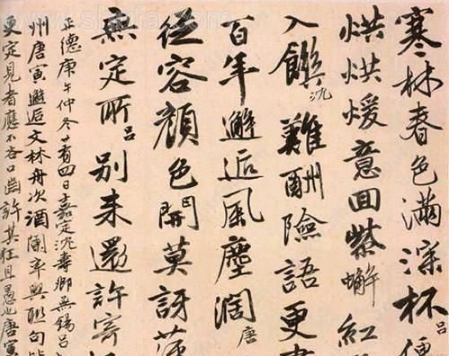 寒林春色滿深杯呂
烘烘煖意回紫蠏紅
入饌沈難酬險語更
百年邂逅風塵濶唐
從容顏色開莫訝
無定所呂別未還許寄
正德庚午仲冬廿有四日嘉定沈壽卿無錫呂
州唐寅邂逅文林舟次酒闌率興聯句
更定見者應不吝口齒許其狂且愚也唐寅